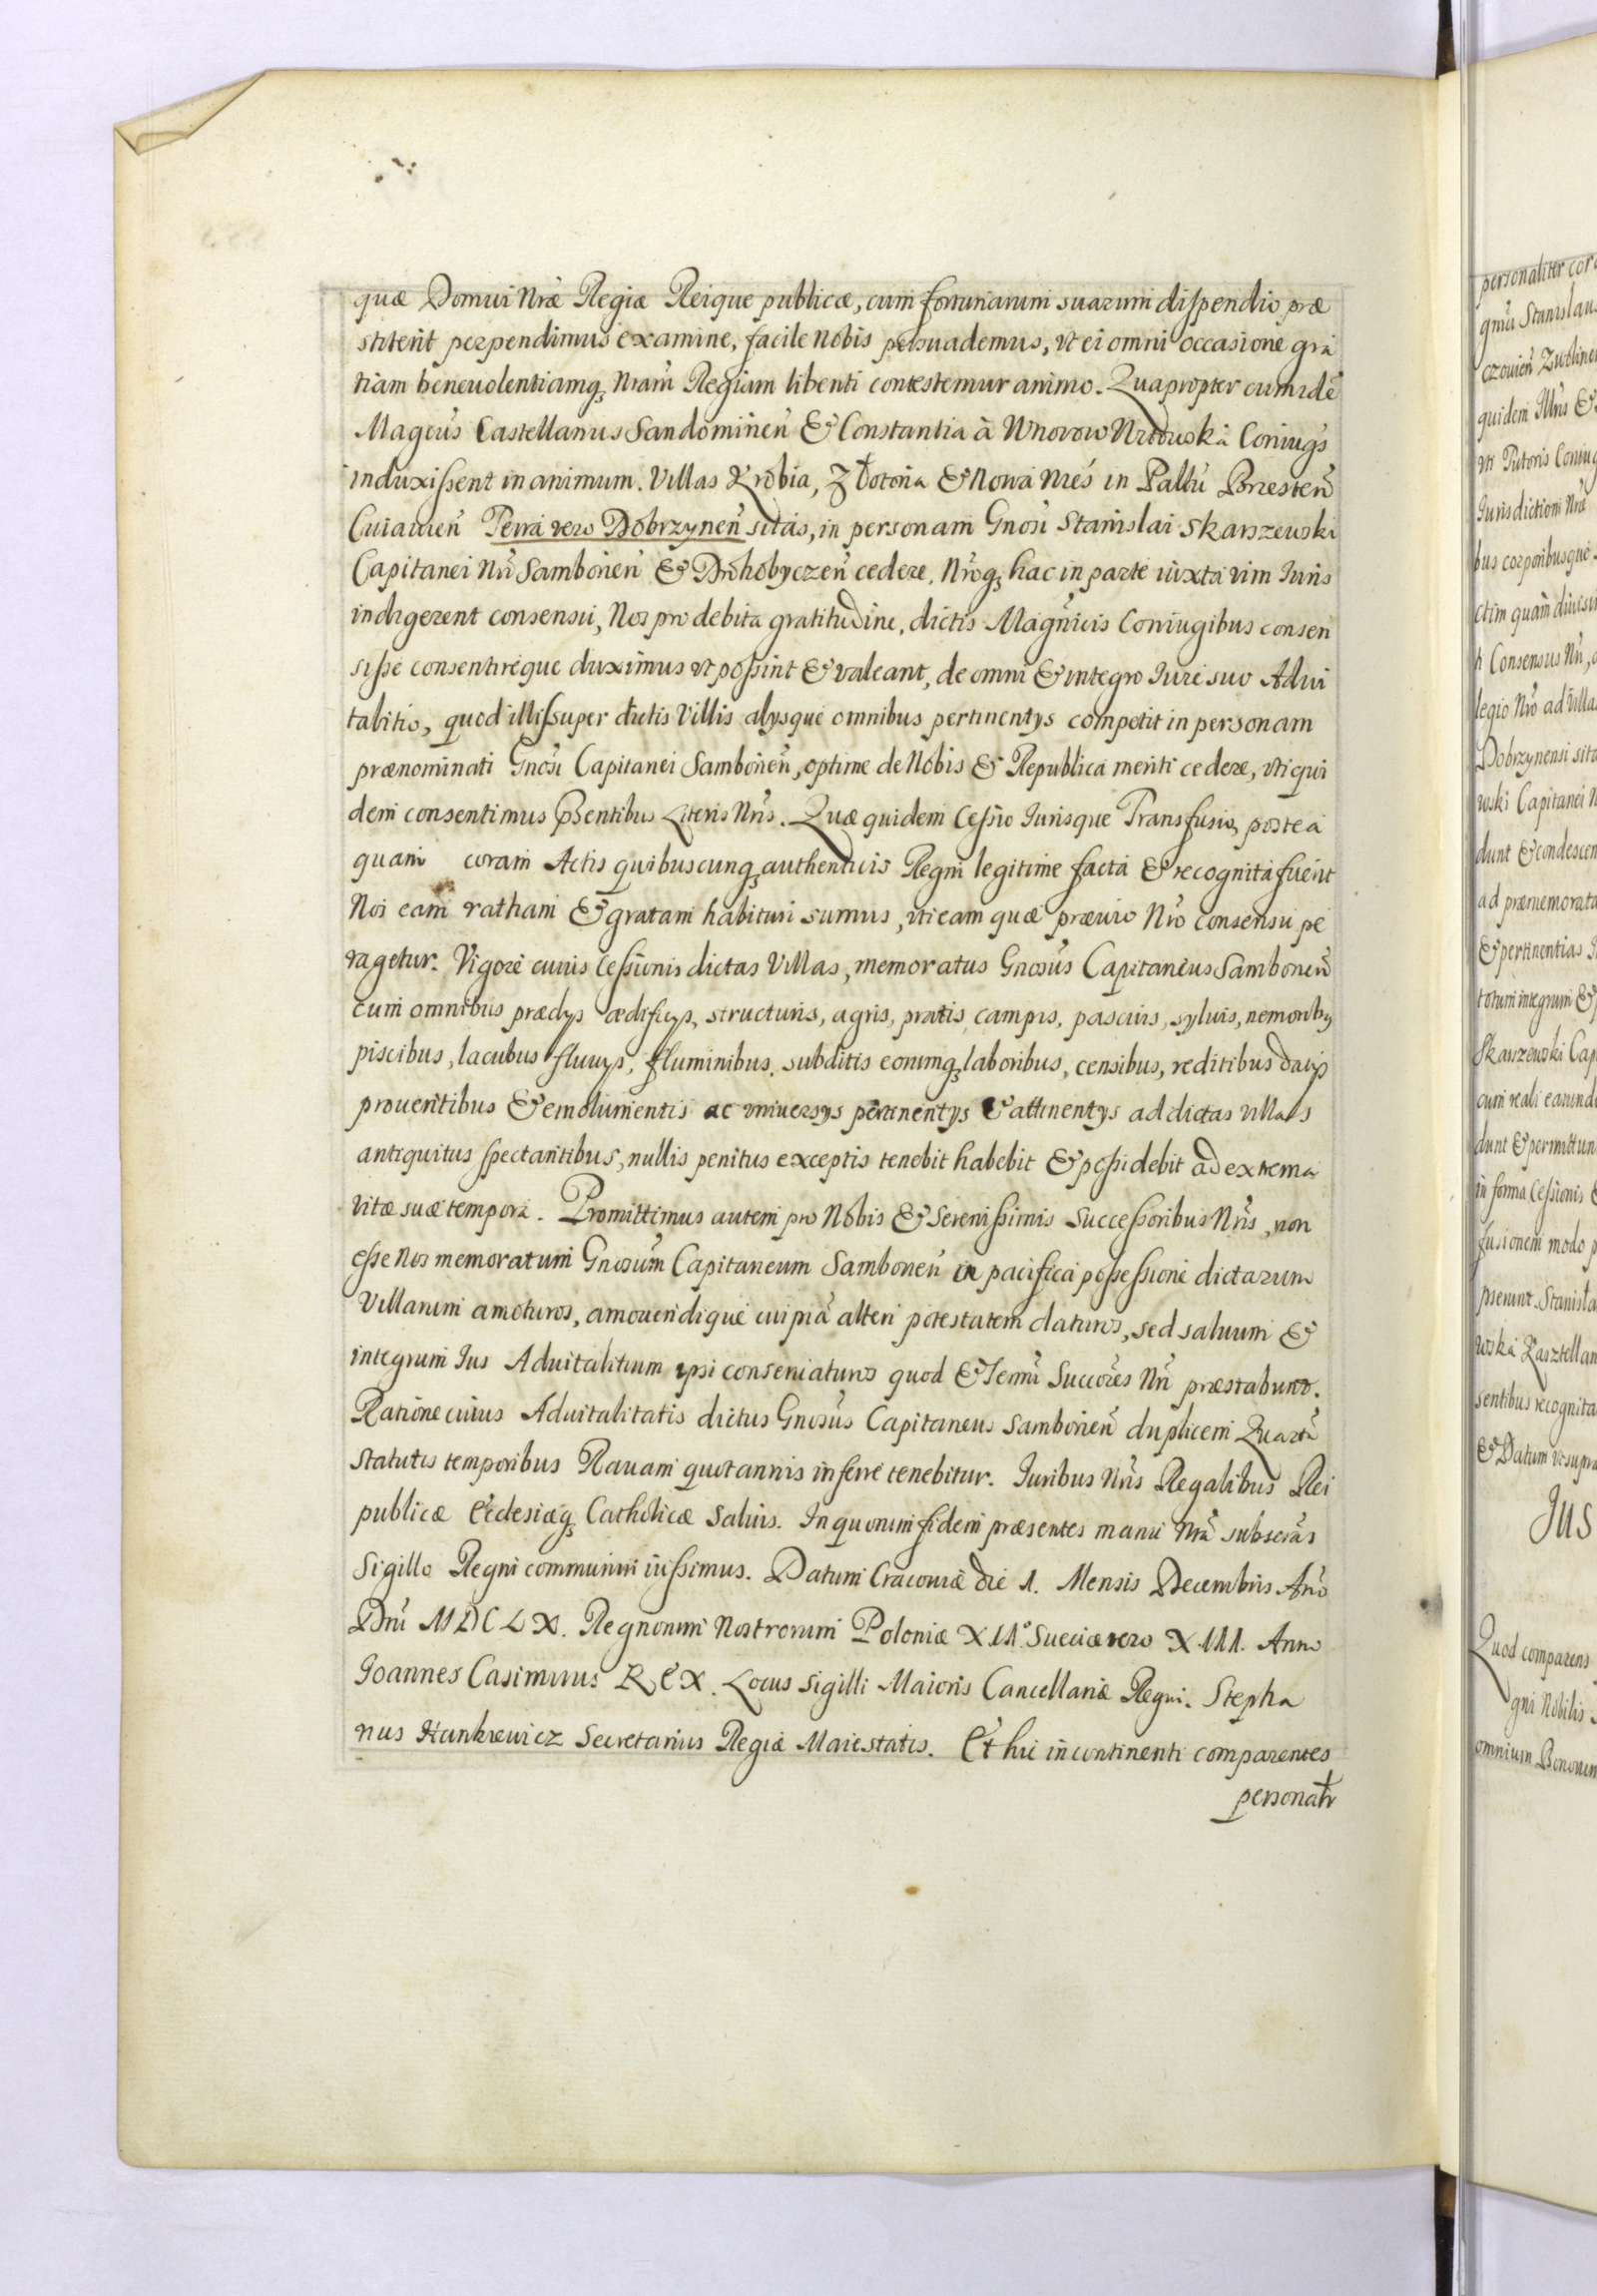 quæ Domui Nræ Regiæ Reique publicæ, cum fortunarum suarum dispendio præ
stiterit perpendimus examine, facile Nobis persuademus, vt ei omni occasione gra
tiam beneuolentiamq; Nram Regiam libenti contestemur animo. Quapropter cum idē
Magcus Castellanus Sandomirien̄ & Constantia à Wnorow Coniugs
induxissent in animum. Villas Krobia, Złotoria & Nowa wies in Pallū Brzesten̄
Cuiauien̄ Terra vero Dobrzynen̄ sitas, in personam Gnosi Stanislai Skarszewski
Capitanei Nri Samborien̄ & Drohobyczen̄ cedere, Nroq; hac in parte iuxta vim Iuris
indigerent consensu, Nos pro debita gratitudine, dictis Magnicis Coniugibus consen
sisse consentireque duximus vt possint & valeant, de omni & integro Iure suo Advi
talitio, quod illis super dictis Villis alysque omnibus pertinentys competit in personam
prænominati Gnosi Capitanei Samborien̄, optime de Nobis & Republica meriti cedere, vti qui
dem consentimus Pṣentibus Literis Nris. Quæ quidem Cessio Iurisque Transfusio, postea
quam coram Actis quibuscunq; authenticis Regni legitime facta & recognita fuerit
Nos eam ratham & gratam habituri sumus, vti eam quæ præuio Nro consensu pe
ragetur. Vigore cuius Cessionis dictas Villas, memoratus Gnosus Capitaneus Samborien̄
cum omnibus prædys ædificys, structuris, agris, pratis, campis, pascuis, syluis, nemoribq
piscibus, lacubus fluuys, fluminibus, subditis eorumq; laboribus, censibus, reditibus datys
prouentibus & emolumentis ac vniuersys pertinentys & attinentys ad dictas villas
antiquitus spectantibus, nullis penitus exceptis tenebit habebit & possidebit ad extrema
vitæ suæ tempora. Promittimus autem pro Nobis & Serenissimis Successoribus Nris, non
esse Nos memoratum Gnosum Capitaneum Samborien̄ in pacifica possessione dictarum
Villarum amoturos, amouendique cuipiā alteri potestatem daturos, sed saluum &
integrum Ius Aduitalitium ipsi conseruaturos quod & Sermi Succores Nri præstabunt.
Ratione cuius Aduitalitatis dictus Gnosus Capitaneus Samborien̄ duplicem Quartā
statutis temporibus Rauam quotannis inferre tenebitur. Iuribus Nris Regalibus Rei
publicæ Ecclesiæq; Catholicæ saluis. In quorum fidem præsentes manu Nra subscras
Sigillo Regni communiri iussimus. Datum Cracouiæ die 1. Mensis Decembris Año
Dni MDCLX. Regnorum Nostrorum Poloniæ XII° Sueciæ vero XIII. Anno
Ioannes Casimirus REX. Locus Sigilli Maioris Cancellariæ Regni. Stepha
nus Hankiewicz Secretarius Regiæ Maiestatis. Et hic in continenti comparentes
personatr
personaliter cor
gnia Stanislau
czouien̄ Zwoline
quidem Illris &
vti Tutoris Coniug
Iurisdictioni Nræ
bus corporibusque
ctim quam diuisi
ti Consensus Nri,
legio Nro ad Villa
Dobrzynensi sita
wski Capitanei N
dunt & condescen
ad præmemorata
& pertinentias I
totum integrum &
Skarszewski Cap
cum reali earund
dunt & permittun
in forma Cessionis &
fusionem modo p
pserunt. Stanisła
wska Kasztellan
sentibus recognita
& Datum vt supra
Jus
Quod comparens
gni Nobilis
omnium Bonorum